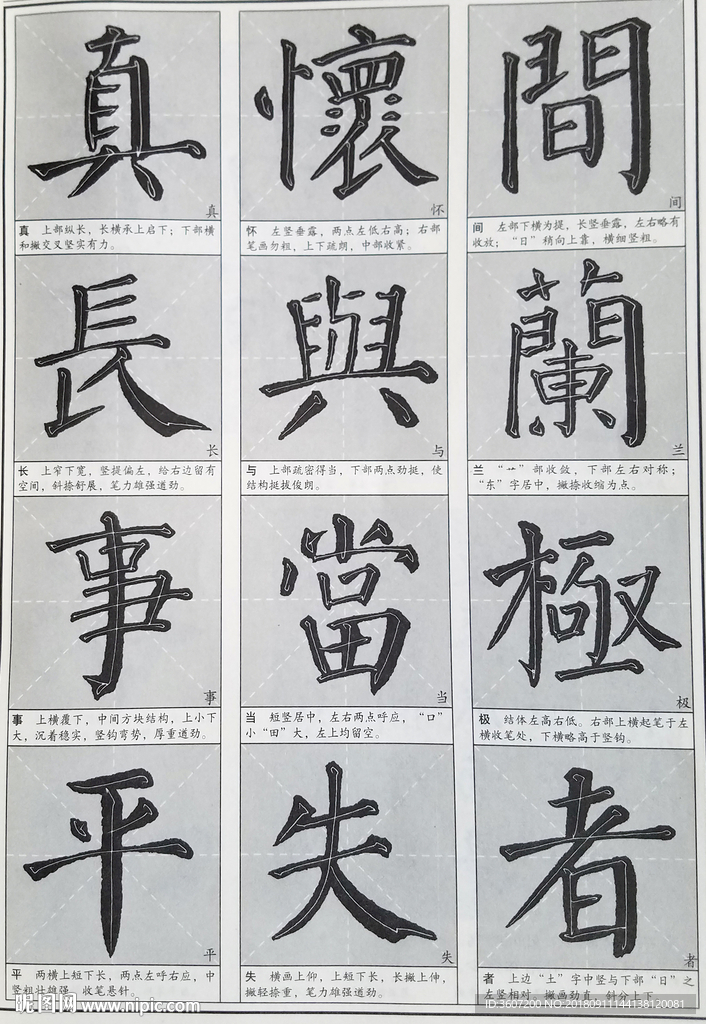 真 懷 間
真 怀 间
真 上部纵长，长横承上启下；下部横
和撇交叉竖实有力。
怀 左竖垂露，两点左低右高；右部
笔画勿粗，上下疏朗，中部收紧。
间 左部下横为提，长竖垂露，左右略有
收放；“日”稍向上靠，横细竖粗。
長 與 蘭
长 与 兰
长 上窄下宽，竖提偏左，给右边留有
空间，斜捺舒展，笔力雄强遒劲。
与 上部疏密得当，下部两点劲挺，使
结构挺拔俊朗。
兰 “艹”部收敛，下部左右对称；
“东”字居中，撇捺收缩为点。
事 當 極
事 当 极
事 上横覆下，中间方块结构，上小下
大，沉着稳实，竖钩弯势，厚重遒劲。
当 短竖居中，左右两点呼应，“口”
小“田”大，左上均留空。
极 结体左高右低。右部上横起笔于左
横收笔处，下横略高于竖钩。
平 失 者
平 失 者
平 两横上短下长，两点左呼右应，中
竖粗壮雄强，收笔悬针。
失 横画上仰，上短下长，长撇上伸，
撇轻捺重，笔力雄强遒劲。
者 上边“土”字中竖与下部“日”之
左竖相对。撇画劲直，斜分上下。
昵图网 www.nipic.com
ID:3607200 NO:20180911144138120081